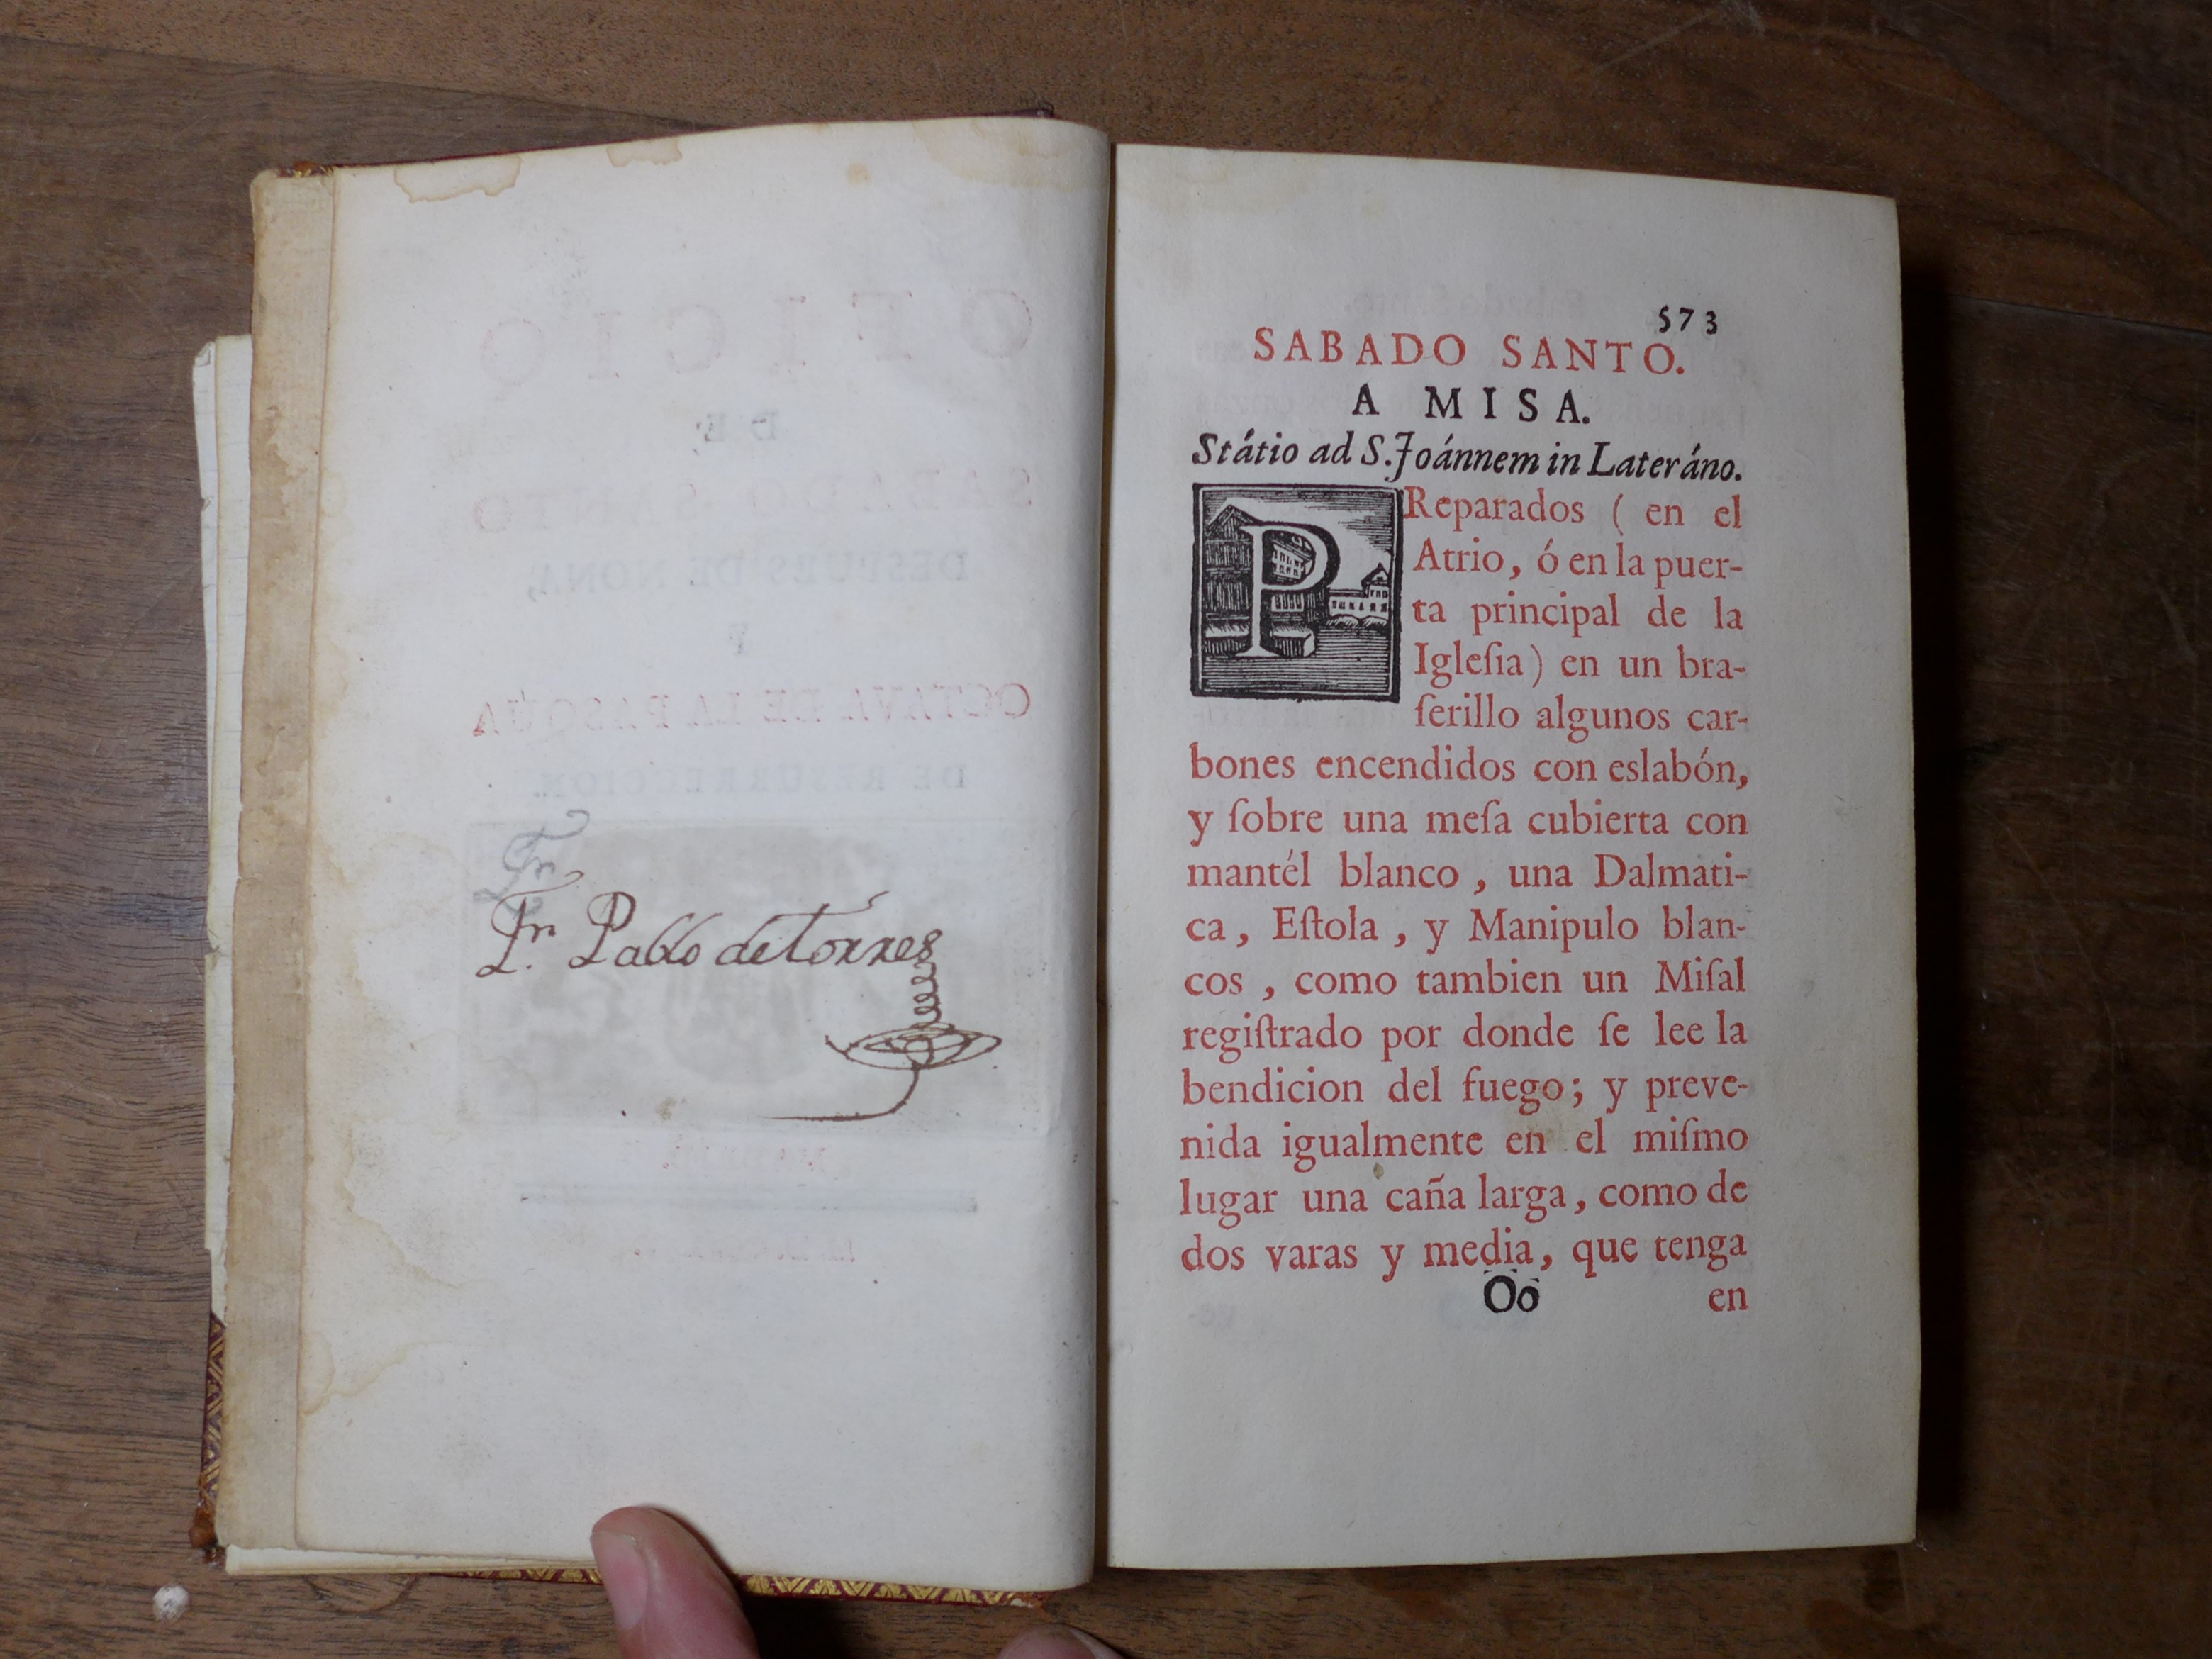 Fr.
Fr. Pablo de Torres
573
SABADO SANTO.
A MISA.
Státio ad S. Joánnem in Lateráno.
PReparados ( en el
Atrio, ó en la puer-
ta principal de la
Igleſia) en un bra-
ſerillo algunos car-
bones encendidos con eslabón,
y ſobre una meſa cubierta con
mantél blanco , una Dalmati-
ca , Eſtola , y Manipulo blan-
cos , como tambien un Miſal
regiſtrado por donde ſe lee la
bendicion del fuego; y preve-
nida igualmente en el miſmo
lugar una caña larga, como de
dos varas y media, que tenga
Oo en